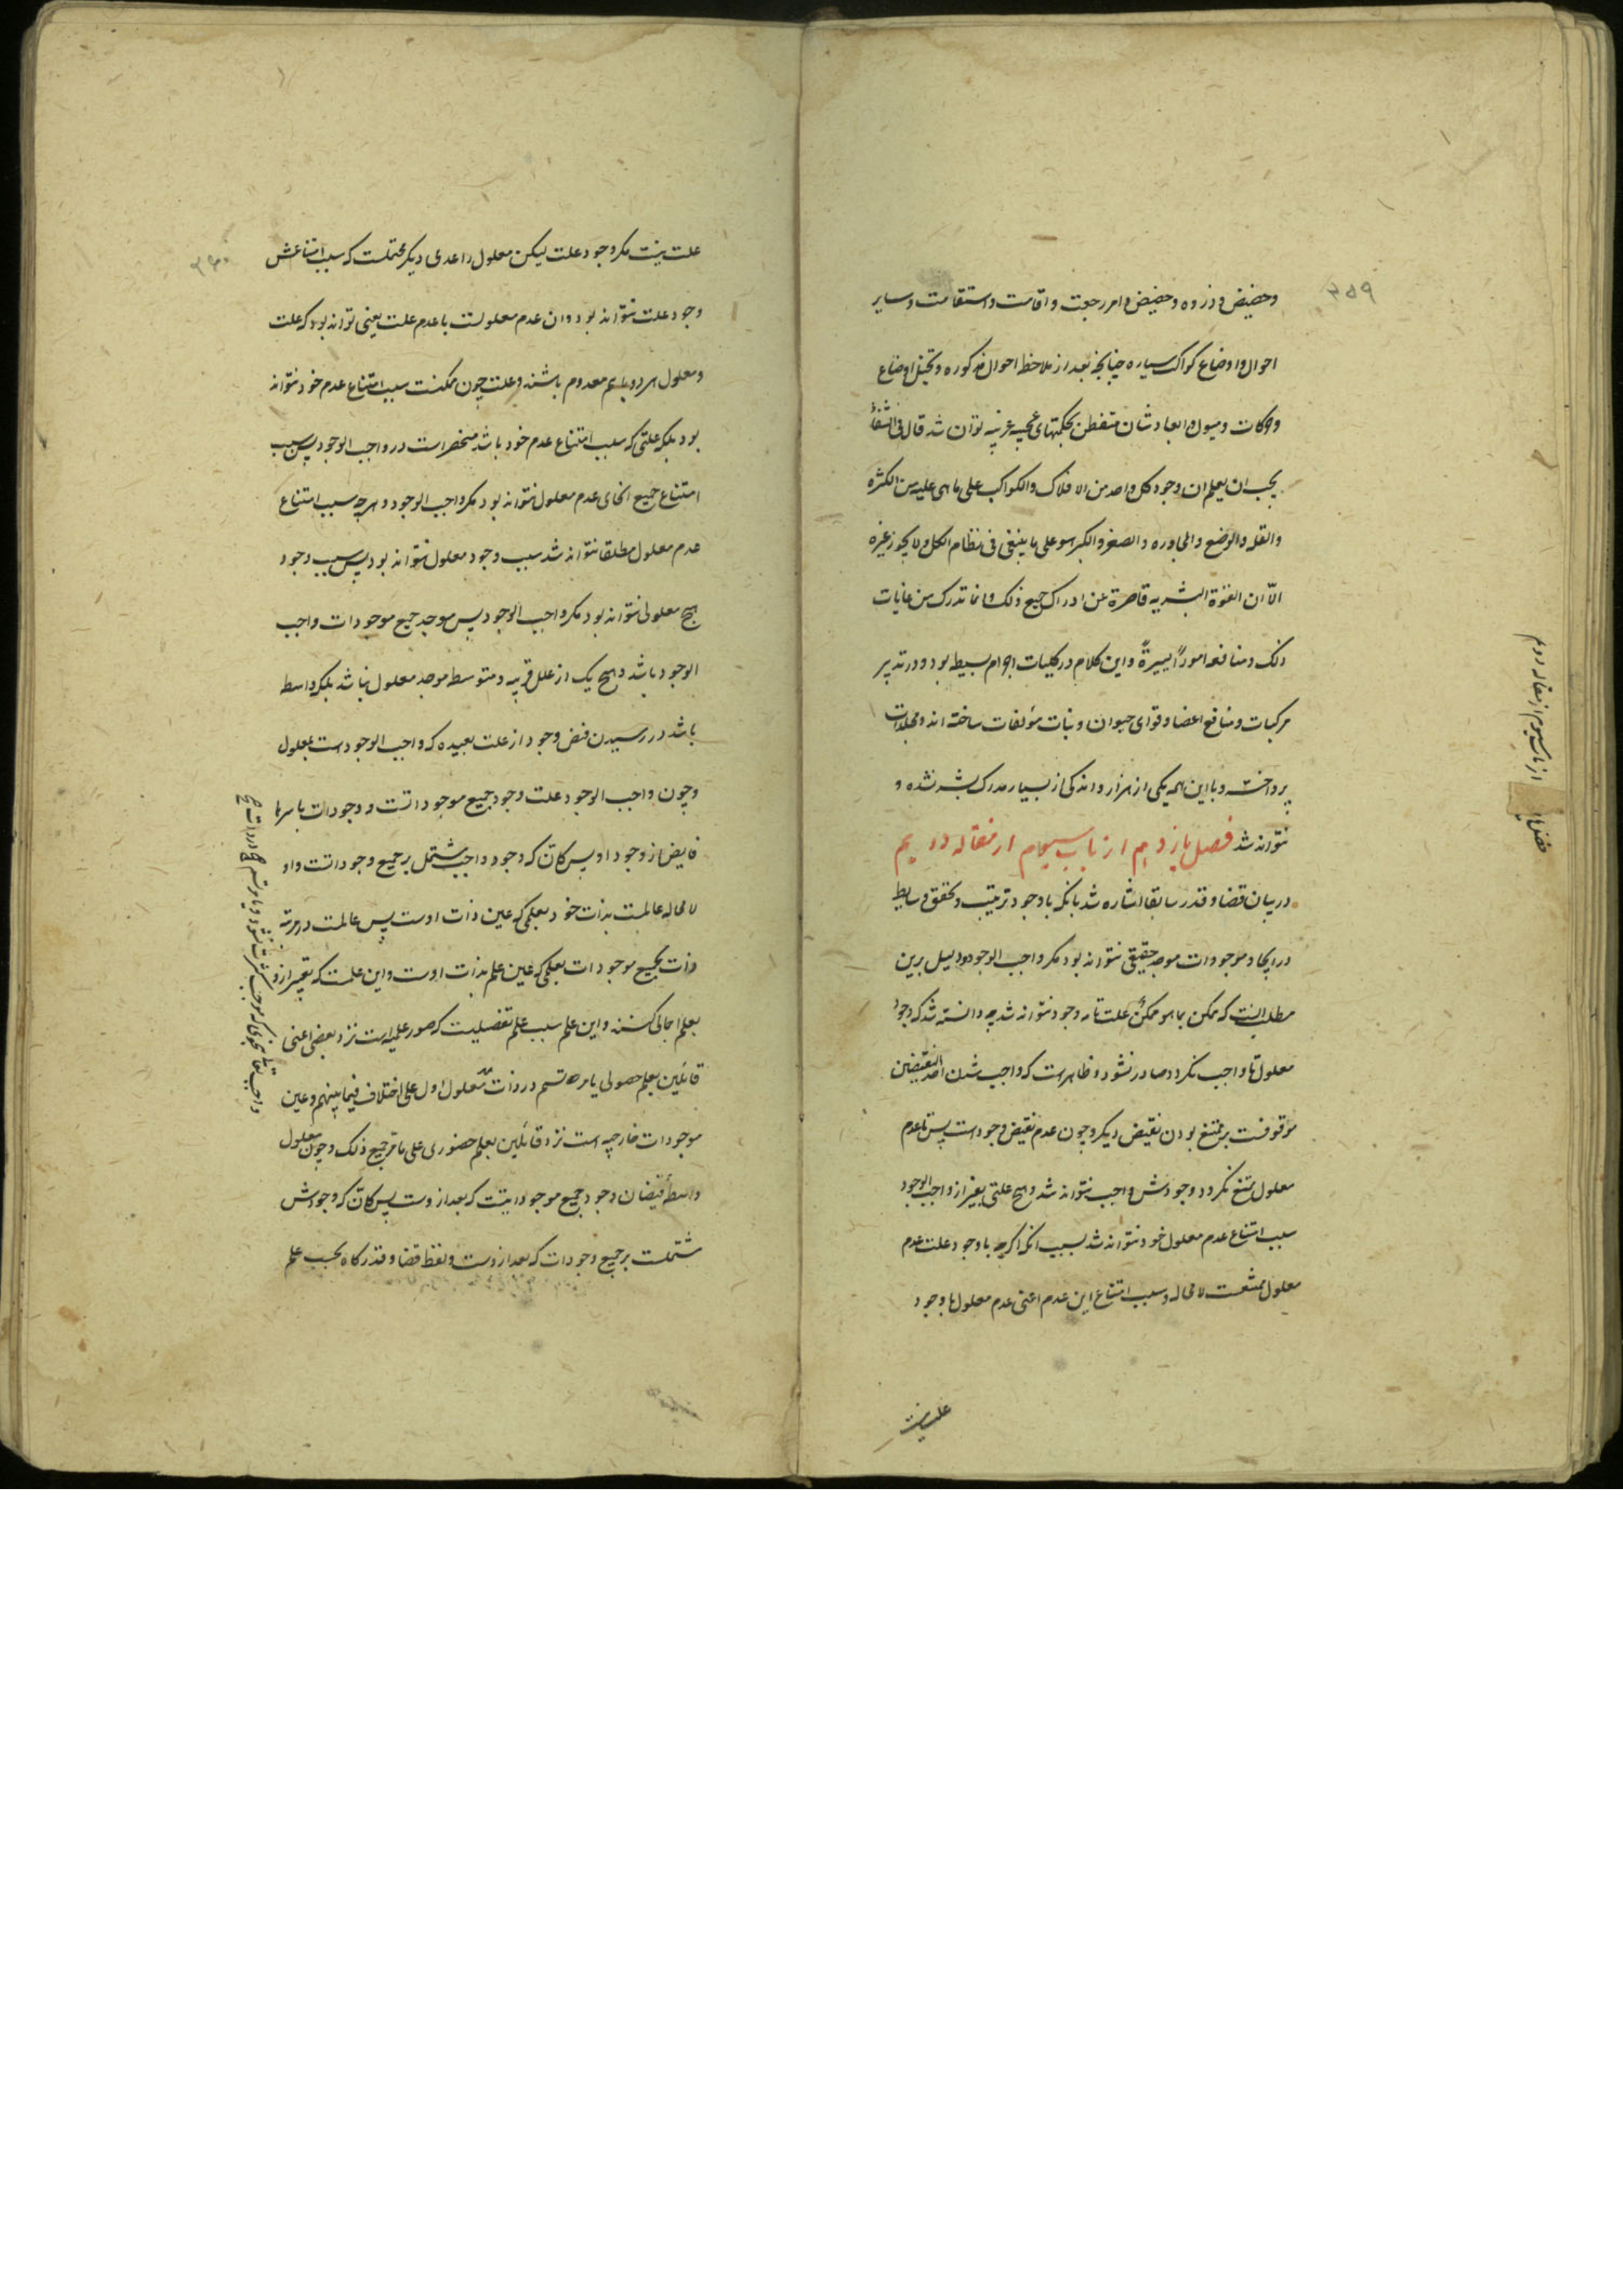 ۳۵۹
وحضیض و ذروه وحضیض و امر رجعت و اقامت و استقامت و سایر
احوال و اوضاع کواکب سیاره چنانچه بعد از ملاحظه احوال مذکوره و تخیل اوضاع
و حرکات و میول و ابعاد شان متفطن بحکمتهای عجیبه غریبه توان شد قال فی الشفا
یجب ان یعلم ان وجود کل واحد من الافلاک والکواکب علی ما هی علیه من الکثره
والقله والوضع والمجاوره والصغر والکبر هو علی ما ینبغی فی نظام الکل ولا یجوز غیره
الّا ان القوّة البشریه قاصرة عن ادراک جمیع ذلک وانما تدرک من غایات
ذلک ومنافعه اموراً یسیرةً و این کلام در کلیات اجرام بسیطه بود و در تدبیر
مرکبات و منافع اعضا و قوای حیوان و نبات مؤلفات ساخته اند و مجلدات
پرداخته و با این همه یکی از هزار و اندکی از بسیار مدرک بشر نشده و
نتواند شد فصل یازدهم از باب سیوم از مقاله دویم
در بیان قضا و قدر سابقا اشاره شد بانکه با وجود ترتیب و تحقق وسایط
در ایجاد موجودات موجد حقیقی نتواند بود مکر واجب الوجود و دلیل برین
مطلب انست که ممکن بما هو ممکن علت تامه وجود نتواند شد چه دانسته شد که وجود
معلول تا واجب نکردد صادر نشود و ظاهرست که واجب شدن احد النقیضین
موقوفست بر ممتنع بودن نقیض دیکر و چون عدم نقیض وجود است پس تا عدم
معلول ممتنع نکردد وجودش واجب نتواند شد و هیچ علتی بغیر از واجب الوجود
سبب امتناع عدم معلول خود نتواند شد بسبب انکه اکرچه با وجود علت عدم
معلول ممتنعست لا محاله و سبب امتناع این عدم اعنی عدم معلول با وجود
علت نیست
از باب سیوم از مقاله دویم
۳۶۰
علت نیست مکر وجود علت لیکن معلول را عدمی دیکر محتملست که سبب امتناعش
وجود علت نتواند بود و ان عدم معلولست با عدم علت یعنی تواند بود که علت
و معلول هر دو با هم معدوم باشند و علت چون ممکنست سبب امتناع عدم خود نتواند
بود بلکه علتی که سبب امتناع عدم خود باشد منحصر است در واجب الوجود پس سبب
امتناع جمیع انحای عدم معلول نتواند بود مکر واجب الوجود و هر چه سبب امتناع
عدم معلول مطلقا نتواند شد سبب وجود معلول نتواند بود پس سبب وجود
هیچ معلولی نتواند بود مکر واجب الوجود پس موجد جمیع موجودات واجب
الوجود باشد و هیچ یک از علل قریبه و متوسط موجد معلول نباشد بلکه واسطه
باشد در رسیدن فیض وجود از علت بعیده که واجب الوجود است بمعلول
و چون واجب الوجود علت وجود جمیع موجوداتست و وجودات باسرها
فایض از وجود او پس کانّ که وجود واجب مشتمل بر جمیع وجوداتست و او
لا محاله عالمست بذات خود بعلمی که عین ذات اوست پس عالمست در مرتبه
ذات بجمیع موجودات بعلمی که عین علم بذات اوست و این علمست که تعبیر ازو
بعلم اجمالی کنند و این علم سبب علم تفصیلیست که صور علمیه است نزد بعضی اعنی
قائلین بعلم حصولی یا مرتسم در ذات معلول اول علی اختلاف فیما بینهم و عین
موجودات خارجیه است نزد قائلین بعلم حضوری علی ما مرّ جمیع ذلک و چون معلول
واسطهٔ فیضان وجود جمیع موجوداتیست که بعد از وست پس کانّ که وجودش
مشتملست بر جمیع وجودات که بعد از وست و لفظ قضا و قدر کاه بحسب علم